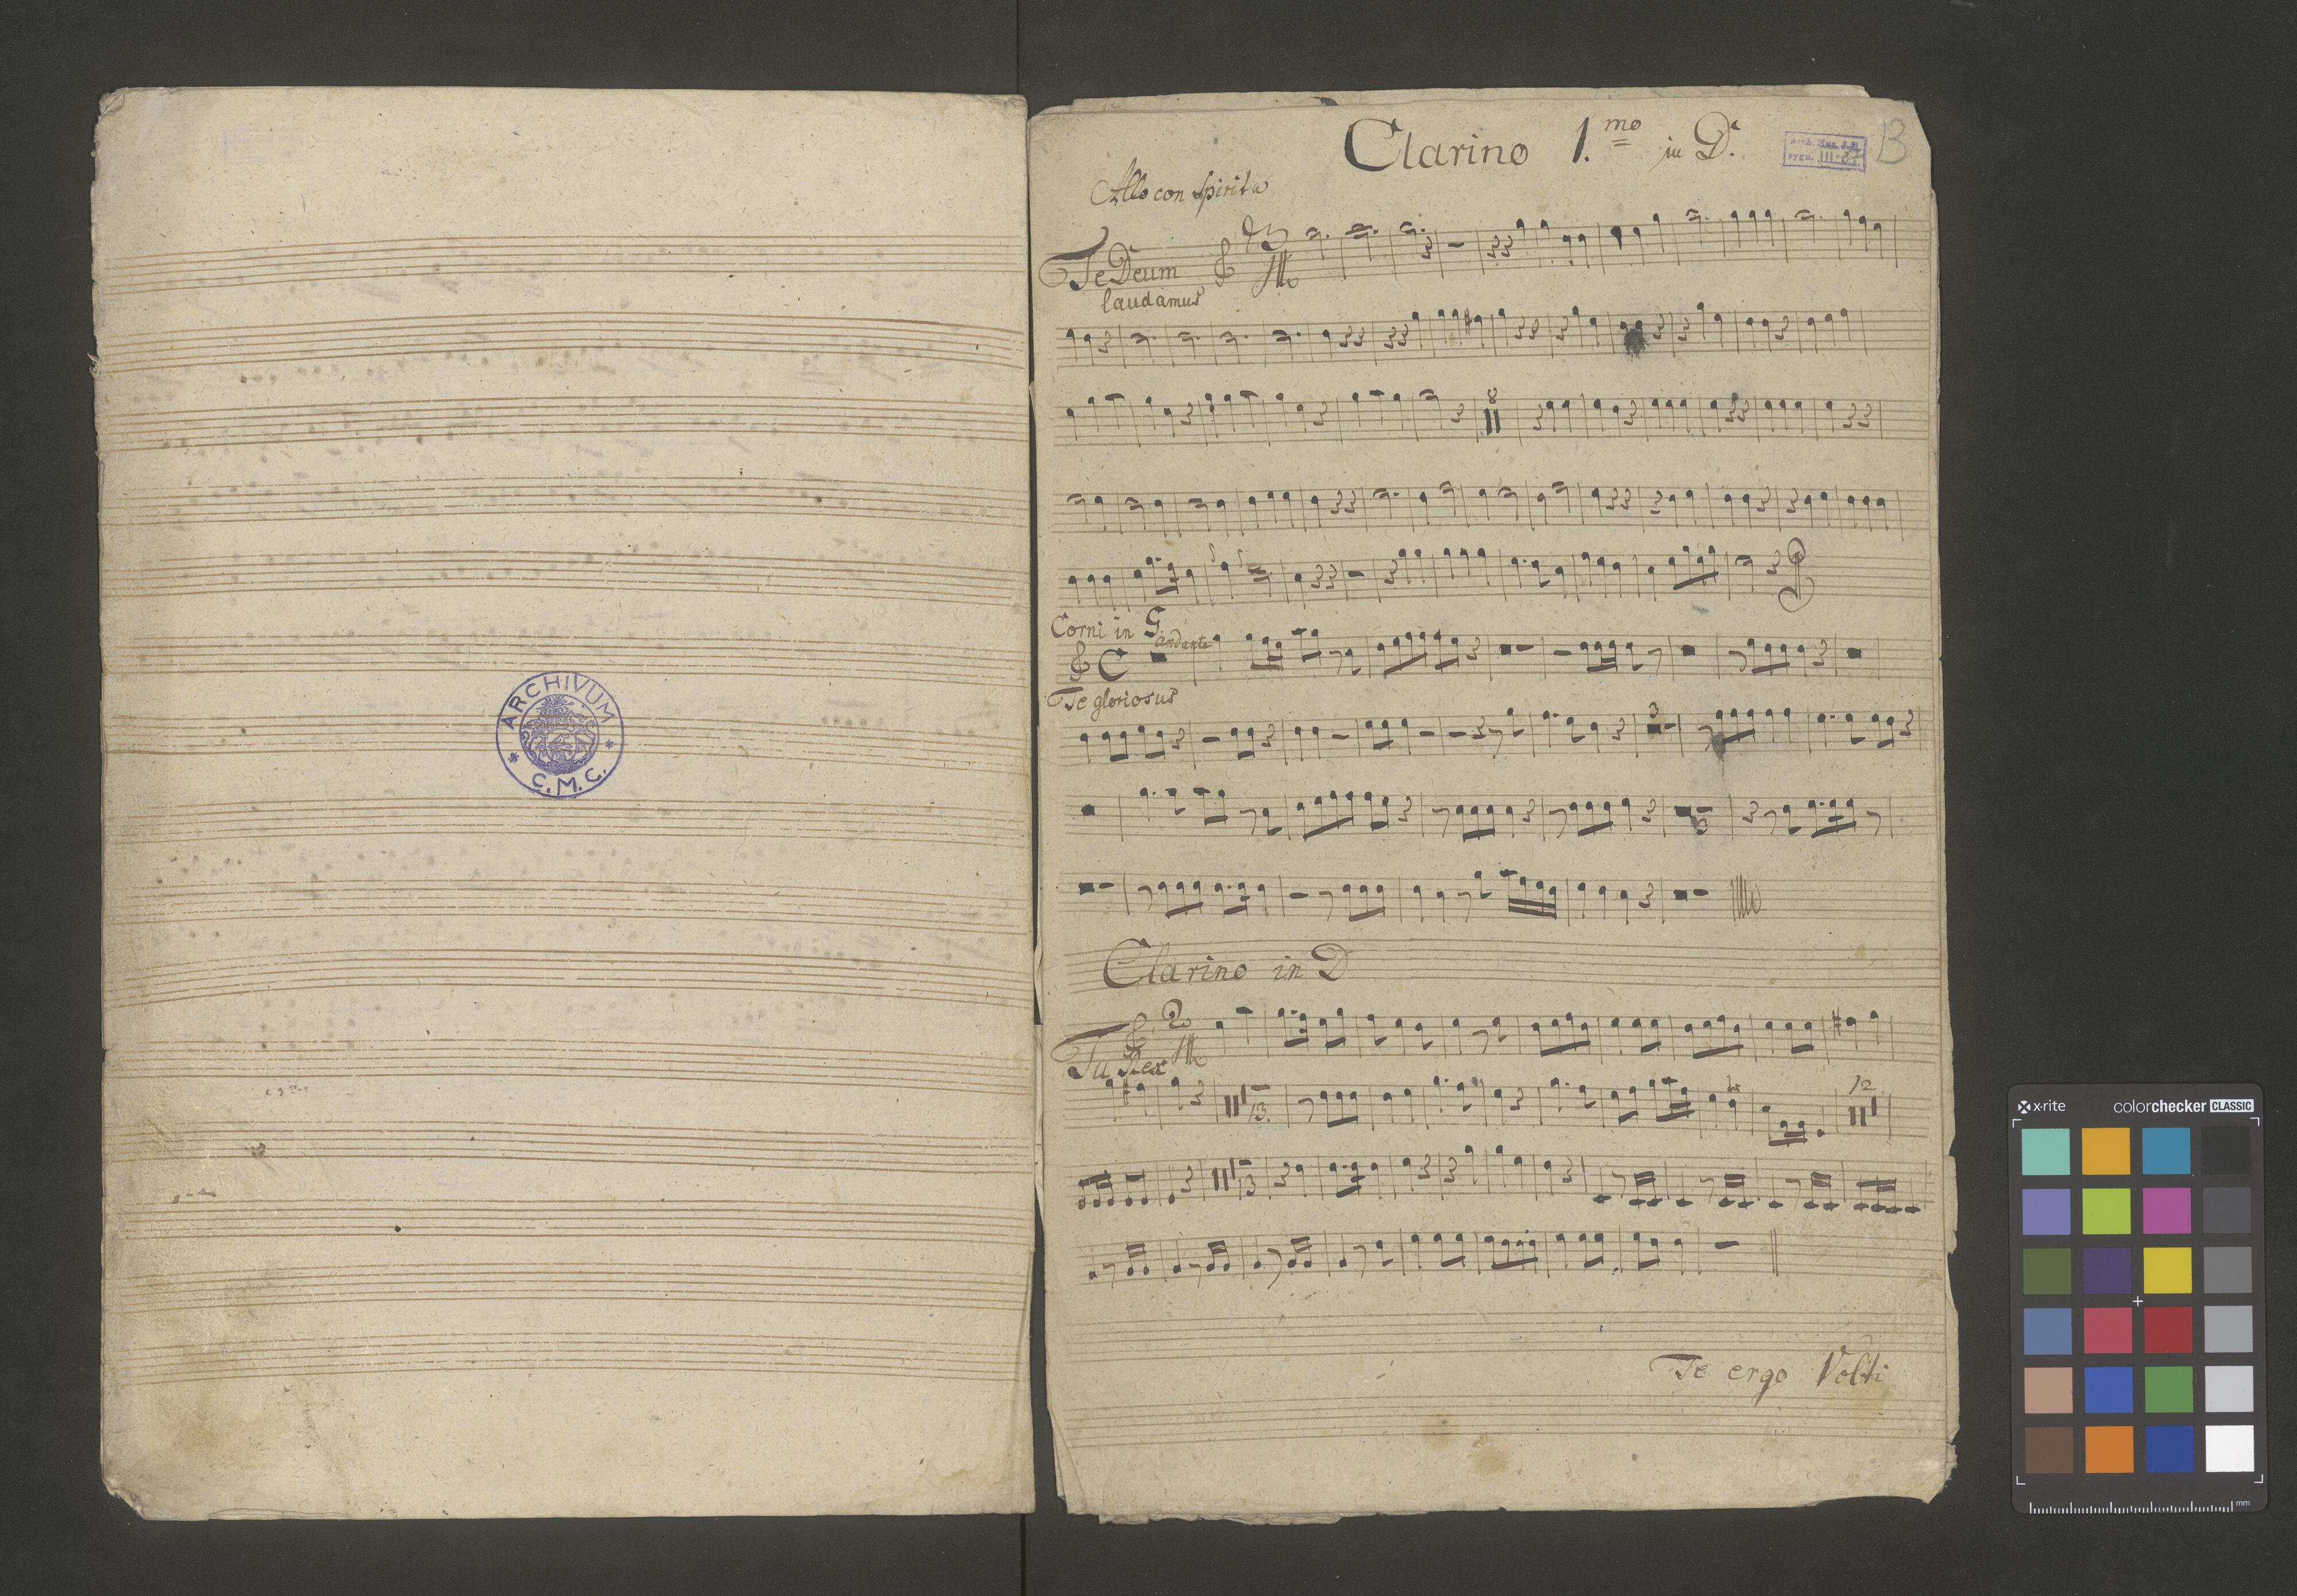 ARCHIVUM
* C.M.C. *
Clarino 1.mo in D.
III-87
13
Allo con Spirito
Te Deum
laudamus
3
8
Corni in G
andante
C
Te gloriosus
3
Clarino in D
2
Tu Rex
13.
12
3
Te ergo Volti
x-rite colorchecker CLASSIC
mm